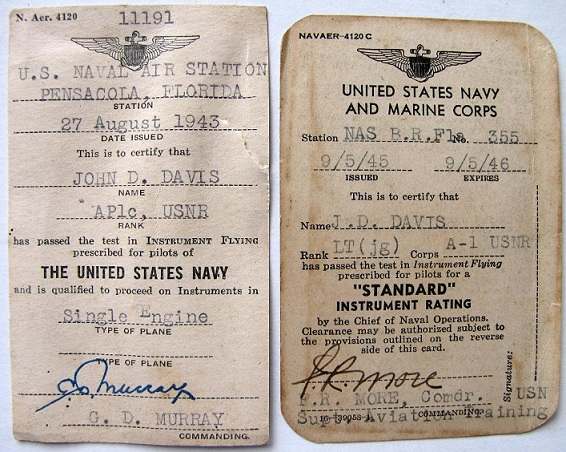 N. Aer. 4120
11191
U.S. NAVAL AIR STATION
PENSACOLA, FLORIDA
STATION
27 August 1943
DATE ISSUED
This is to certify that
JOHN D. DAVIS
NAME
AP1c, USNR
RANK
has passed the test in INSTRUMENT FLYING
prescribed for pilots of
THE UNITED STATES NAVY
and is qualified to proceed on Instruments in
Single Engine
TYPE OF PLANE
TYPE OF PLANE
G D Murray
G. D. MURRAY
COMMANDING.
NAVAER-4120 C
UNITED STATES NAVY
AND MARINE CORPS
Station NAS B.R.Fla. No. 355
9/5/45 9/5/46
ISSUED EXPIRES
This is to certify that
Name J.D. DAVIS
Rank LT(jg) Corps A-1 USNR
has passed the test in Instrument Flying
prescribed for pilots for a
"STANDARD"
INSTRUMENT RATING
by the Chief of Naval Operations.
Clearance may be authorized subject to
the provisions outlined on the reverse
side of this card.
Signature:
R. More
R. MORE, Comdr. USN
COMMANDING
Supt. Aviation Training